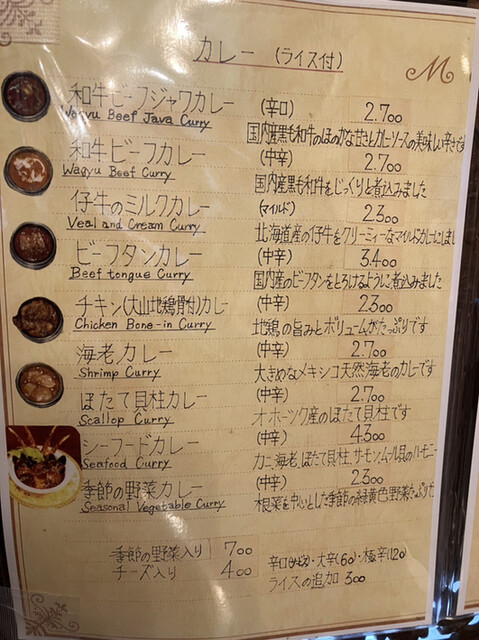 カレー (ライス付)
M
和牛ビーフジャワカレー (辛口) 2.700
Wagyu Beef Java Curry
国内産黒毛和牛のほのかな甘さとカレーソースの美味しい辛さです
和牛ビーフカレー (中辛) 2.700
Wagyu Beef Curry
国内産黒毛和牛をじっくりと煮込みました
仔牛のミルクカレー (マイルド) 2.300
Veal and Cream Curry
北海道産の仔牛をクリーミィーなマイルドカレーにしまし
ビーフタンカレー (中辛) 3.400
Beef tongue Curry
国内産のビーフタンをとろけるように煮込みました
チキン(大山地鶏骨付)カレー (中辛) 2.300
Chicken Bone-in Curry
地鶏の旨みとボリュームがたっぷりです
海老カレー (中辛) 2.700
Shrimp Curry
大きめなメキシコ天然海老のカレーです
ほたて貝柱カレー (中辛) 2.700
Scallop Curry
オホーツク産のほたて貝柱です
シーフードカレー (中辛) 4.300
Seafood Curry
カニ、海老、ほたて貝柱、サーモン、ムール貝のハーモニー
季節の野菜カレー (中辛) 2.300
Seasonal Vegetable Curry
根菜を中心とした季節の緑黄色野菜たっぷり
季節の野菜入り 700
チーズ入り 400
辛口 ・大辛(60)・極辛(120)
ライスの追加 300